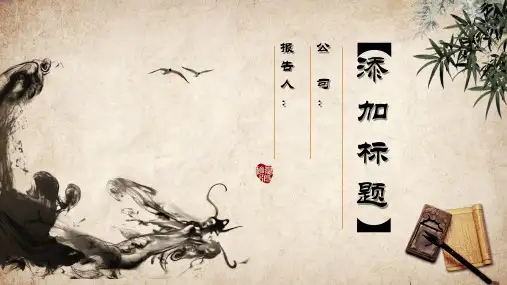 【添加标题】
公司：
报告人：